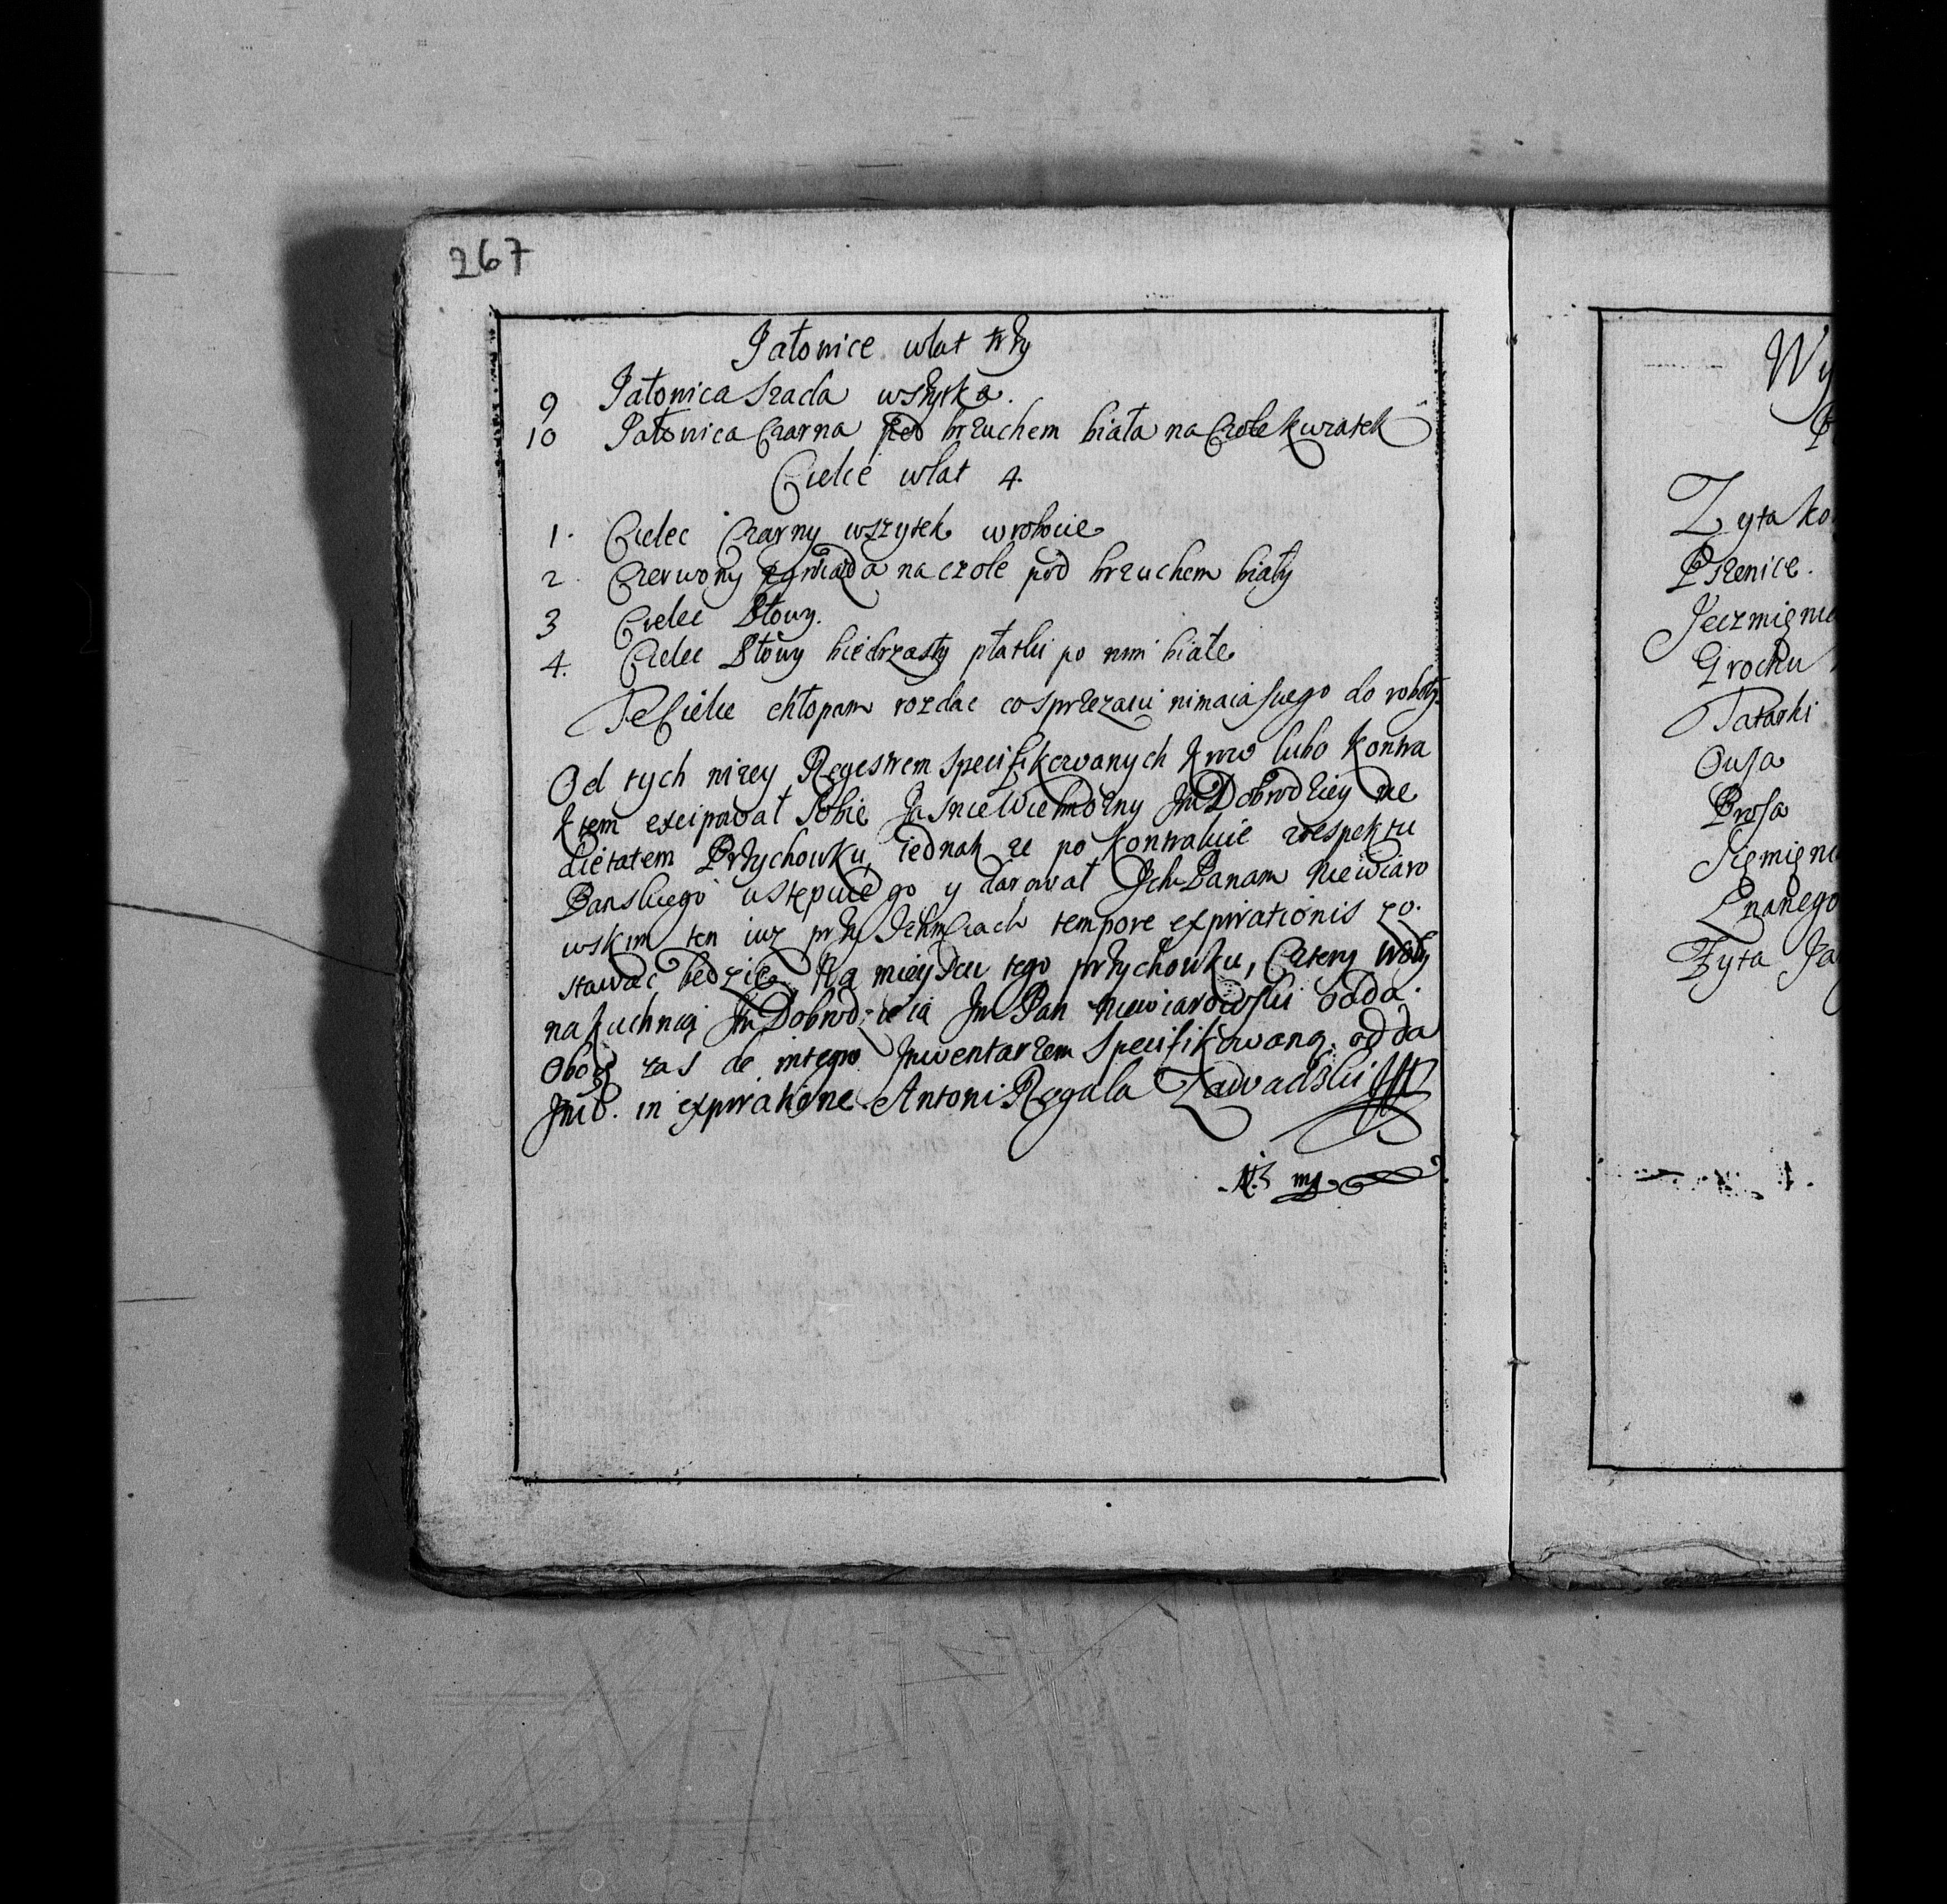 267
Jałowice wlat trzy
9 Jałowica Szada wszytka.
10 Jałowica Czarna pod brzuchem biała na Czole kwiatek
Cielce wlat 4.
1. Cielec Czarny wszytek wrobocie
2. Czerwony gwiazda na czole pod brzuchem biały
3 Cielec Płowy.
4. Cielec Płowy biedrzasty płatki po nim białe
Te Cielce chłopam rozdac co sprzezaiu nimaią swego do roboty.
Od tych nizey Regestrem Specifikowanych Krow lubo Kontra
ktem excipował Sobie Jasnie Wielmozny Jm Dobrodziey me
dietatem Przychowku, iednak ze po kontrakcie zrespektu
Panskiego ustępuie go y darował Ich Panam Niewiaro
wskim ten iuz przy Ichmciach tempore expirationis zo.
stawac bedzie, Na mieyscu tego przychowku, Cztery Woły
na kuchnią Jm Dobrodzieia Jm Pan Niewiarowski odda.
Oborę zas de integro Jnwentarzem Specifikowaną. odda
Jmć. in expiratione. Antoni Regula Zawadzki
mp
Wy
Zyta ko
Pszenice.
Jeczmięnia
Grochu
Tatarki
Owsa
Prosa
Siemięni
Lnanego
Zyta Ja